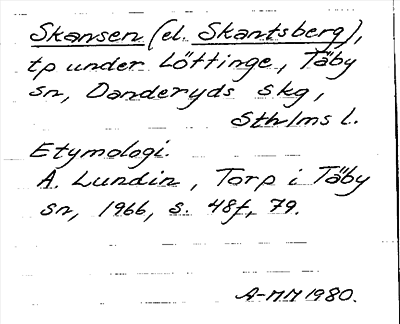 Skansen (el. Skantsberg),
tp under Löttinge, Täby
sn, Danderyds skg,
Sthlms l.
Etymologi.
A. Lundin, Torp i Täby
sn, 1966, s. 48f, 79.
A-MM 1980.